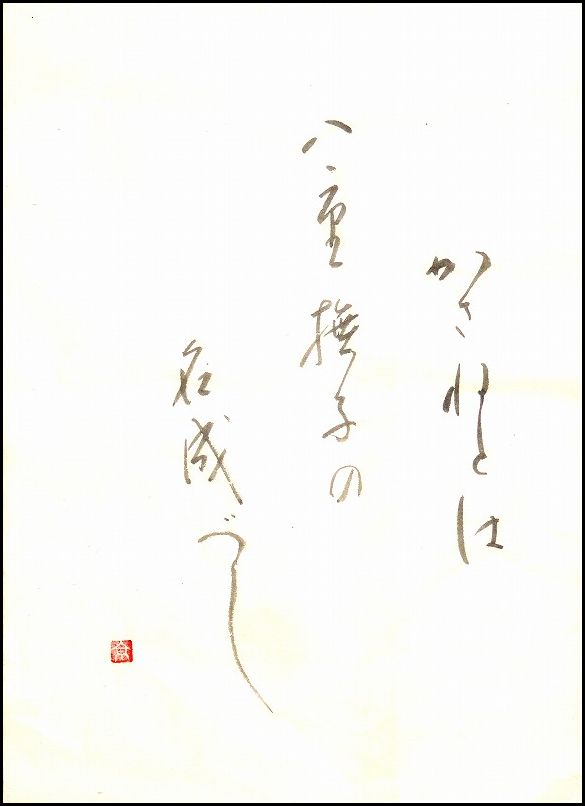 かさねとは
八重撫子の
名成べし